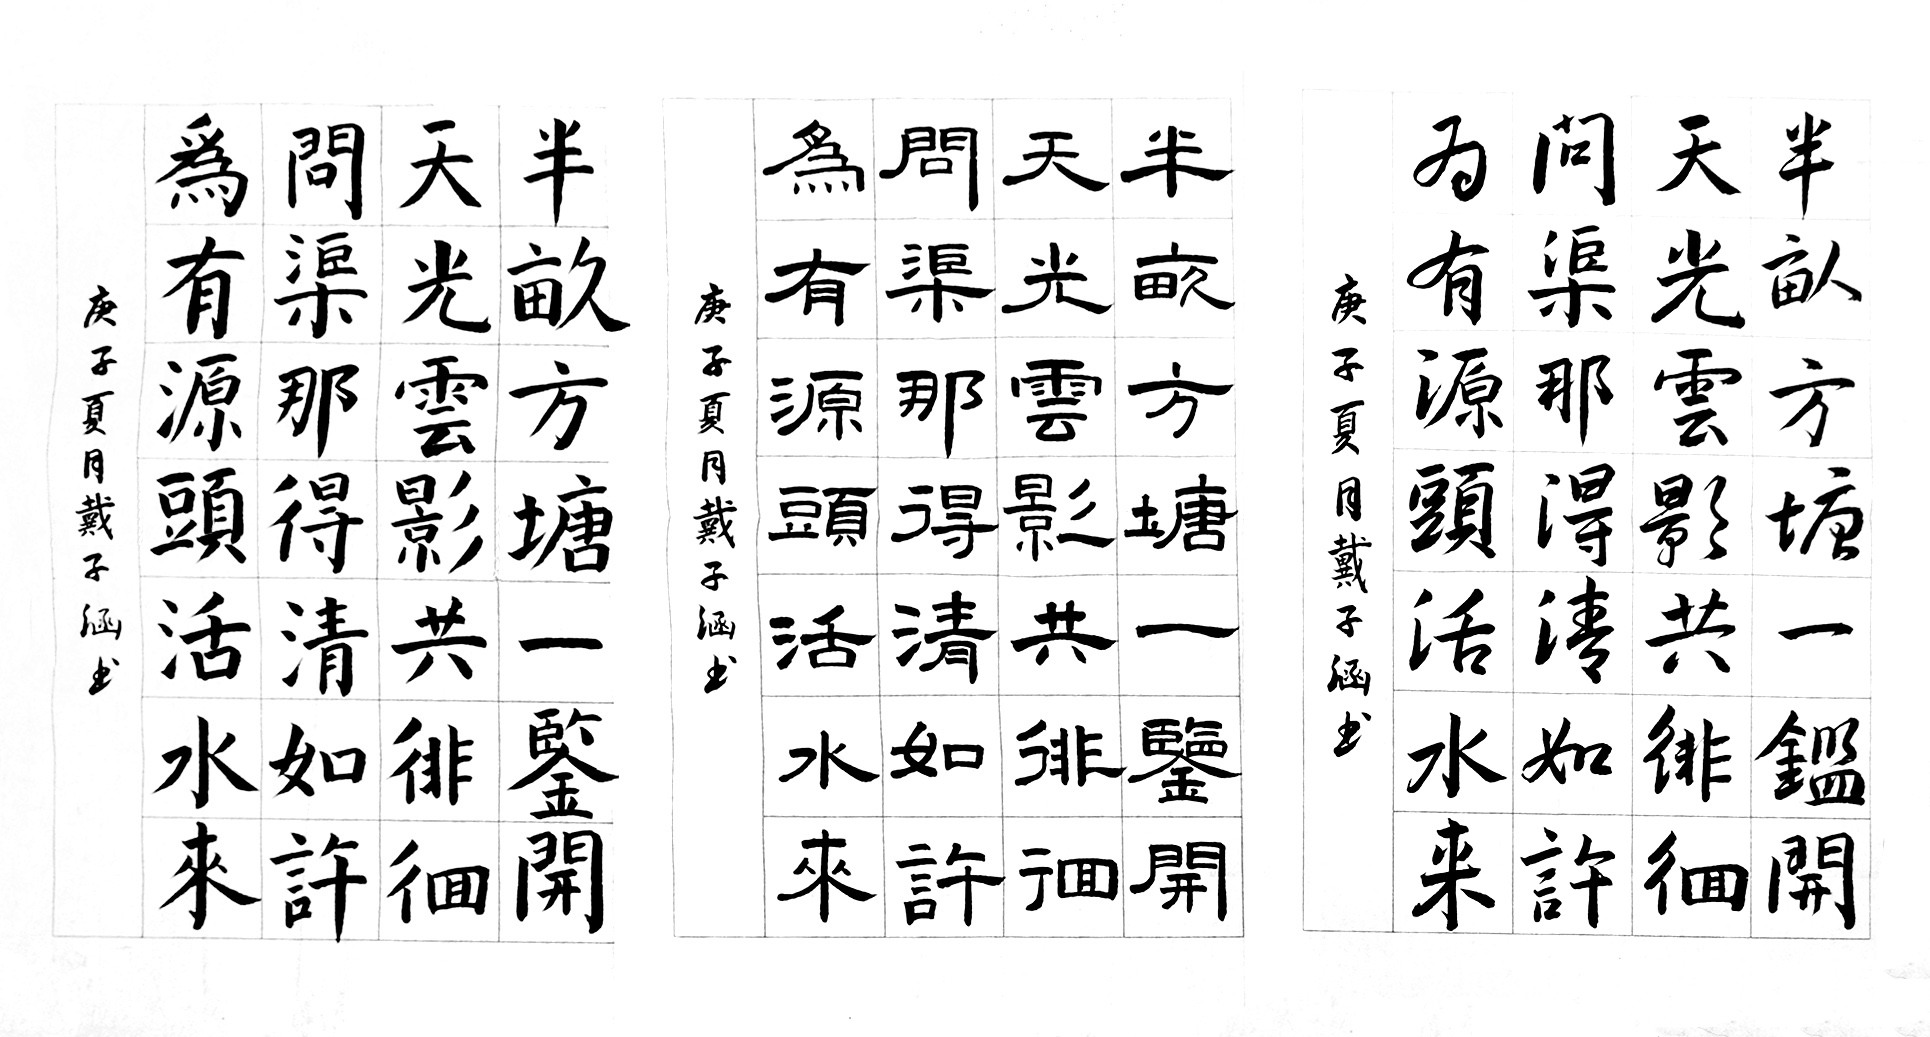 半畝方塘一鑒開
天光雲影共徘徊
問渠那得清如許
爲有源頭活水來
庚子夏月戴子涵书
半畝方塘一鑒開
天光雲影共徘徊
問渠那得清如許
為有源頭活水來
庚子夏月戴子涵书
半畝方塘一鑑開
天光雲影共徘徊
问渠那得清如許
为有源頭活水来
庚子夏月戴子涵书